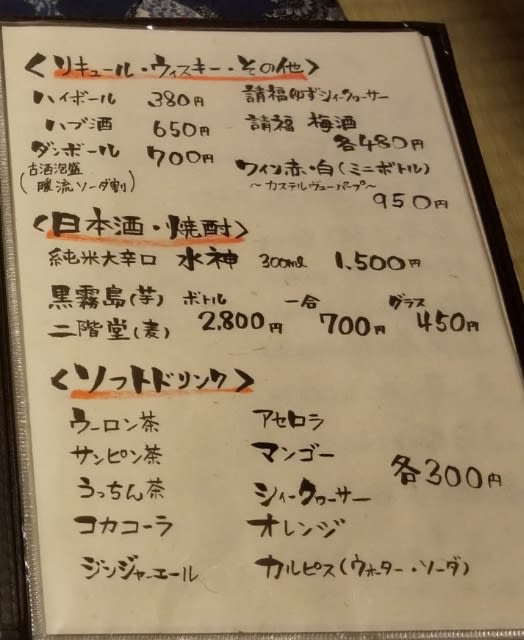 <リキュール・ウィスキー・その他>
ハイボール 380円 請福ゆずシークヮーサー
ハブ酒 650円 請福 梅酒
各480円
ダンボール 700円
(古酒泡盛 暖流ソーダ割)
ワイン赤・白(ミニボトル)
~カステルヴューパープ~
950円
<日本酒・焼酎>
純米大辛口 水神 300ml 1,500円
黒霧島(芋) ボトル 一合 グラス
二階堂(麦) 2,800円 700円 450円
<ソフトドリンク>
ウーロン茶 アセロラ
サンピン茶 マンゴー
各300円
うっちん茶 シィークヮーサー
コカコーラ オレンジ
ジンジャーエール カルピス(ウォーター・ソーダ)